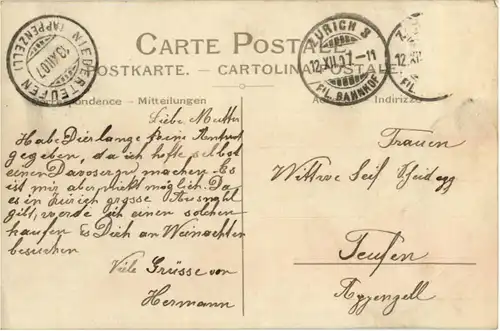 CARTE POSTALE
POSTKARTE. – CARTOLINA POSTALE.
NIEDERTEUFEN
(APPENZELL)
13.XII.07
ZÜRICH 3
12.XII.07.-11
FIL. BAHNHOF
12.XII
FIL
Correspondence – Mitteilungen
Indirizzo
Liebe Mutter
Habe Dir lange keine Antwort
gegeben, da ich hofte selbst
einen machen. Es
ist mir aber nicht möglich. Da
es in Zürich grosse Auswahl
gibt, werde ich einen solchen
kaufen Es Dich an Weinachten
besuchen
Viele Grüsse von
Hermann
Frauen
Wittwe Seif
Teufen
Appenzell